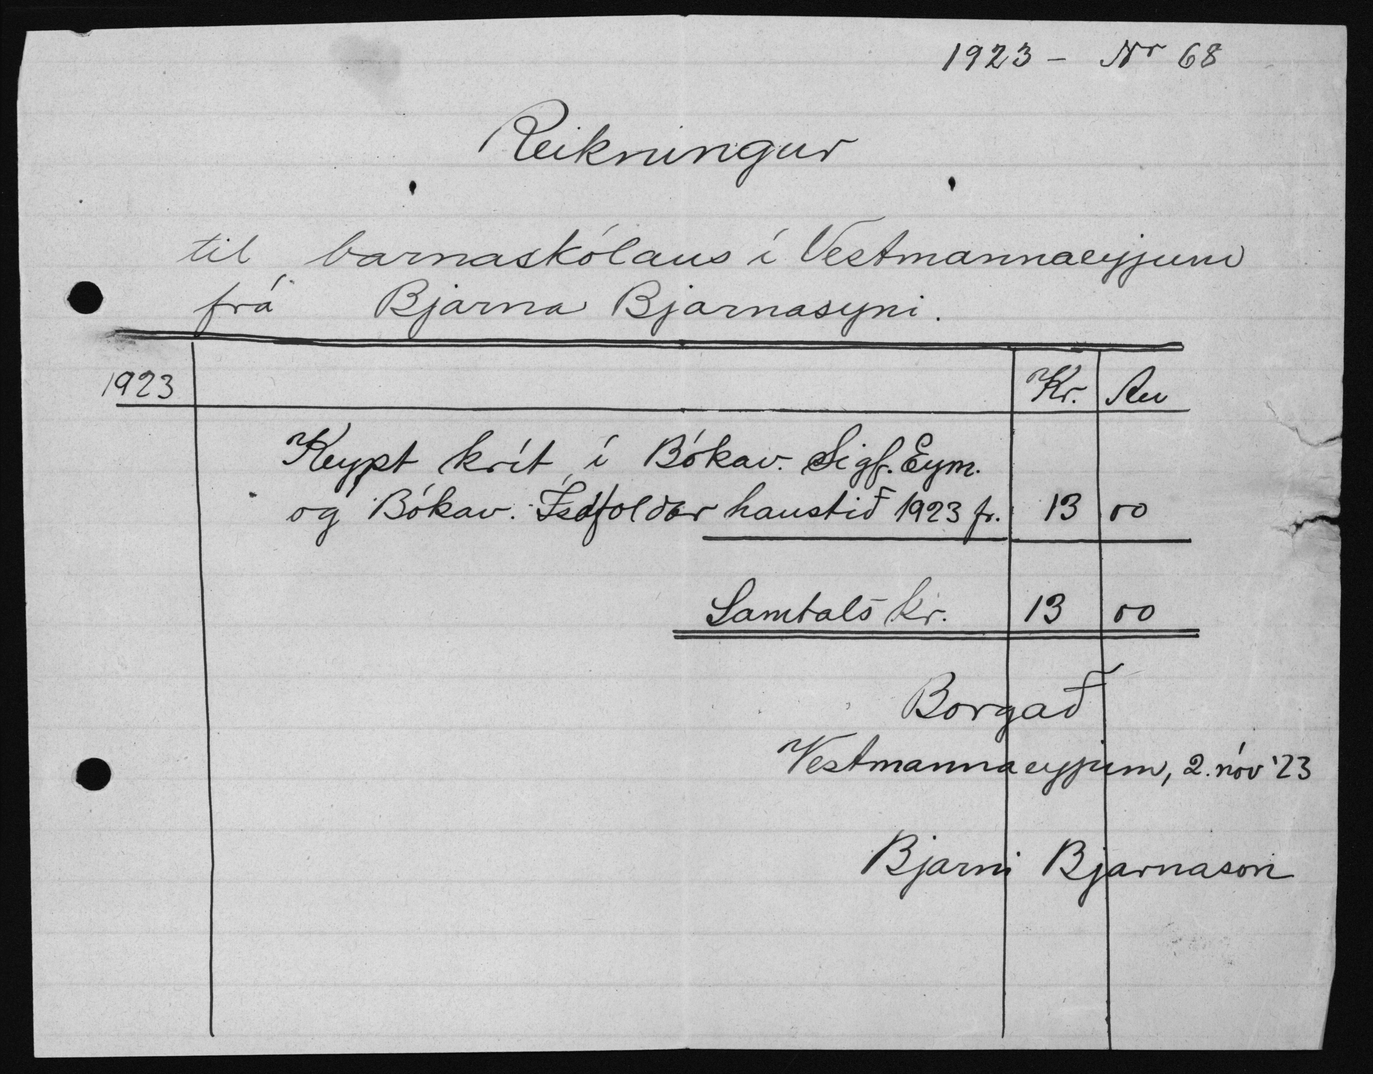 1923 – Nr 68
Reikningur
til barnaskólans í Vestmannaeyjum
frá Bjarna Bjarnasyni.
1923 Kr. Au
Keypt krít í Bókav. Sigf. Eym.
og Bókav. Ísafoldar haustið 1923 fr. 13 00
Samtals kr. 13 00
Borgað
Vestmannaeyjum, 2. nóv '23
Bjarni Bjarnason